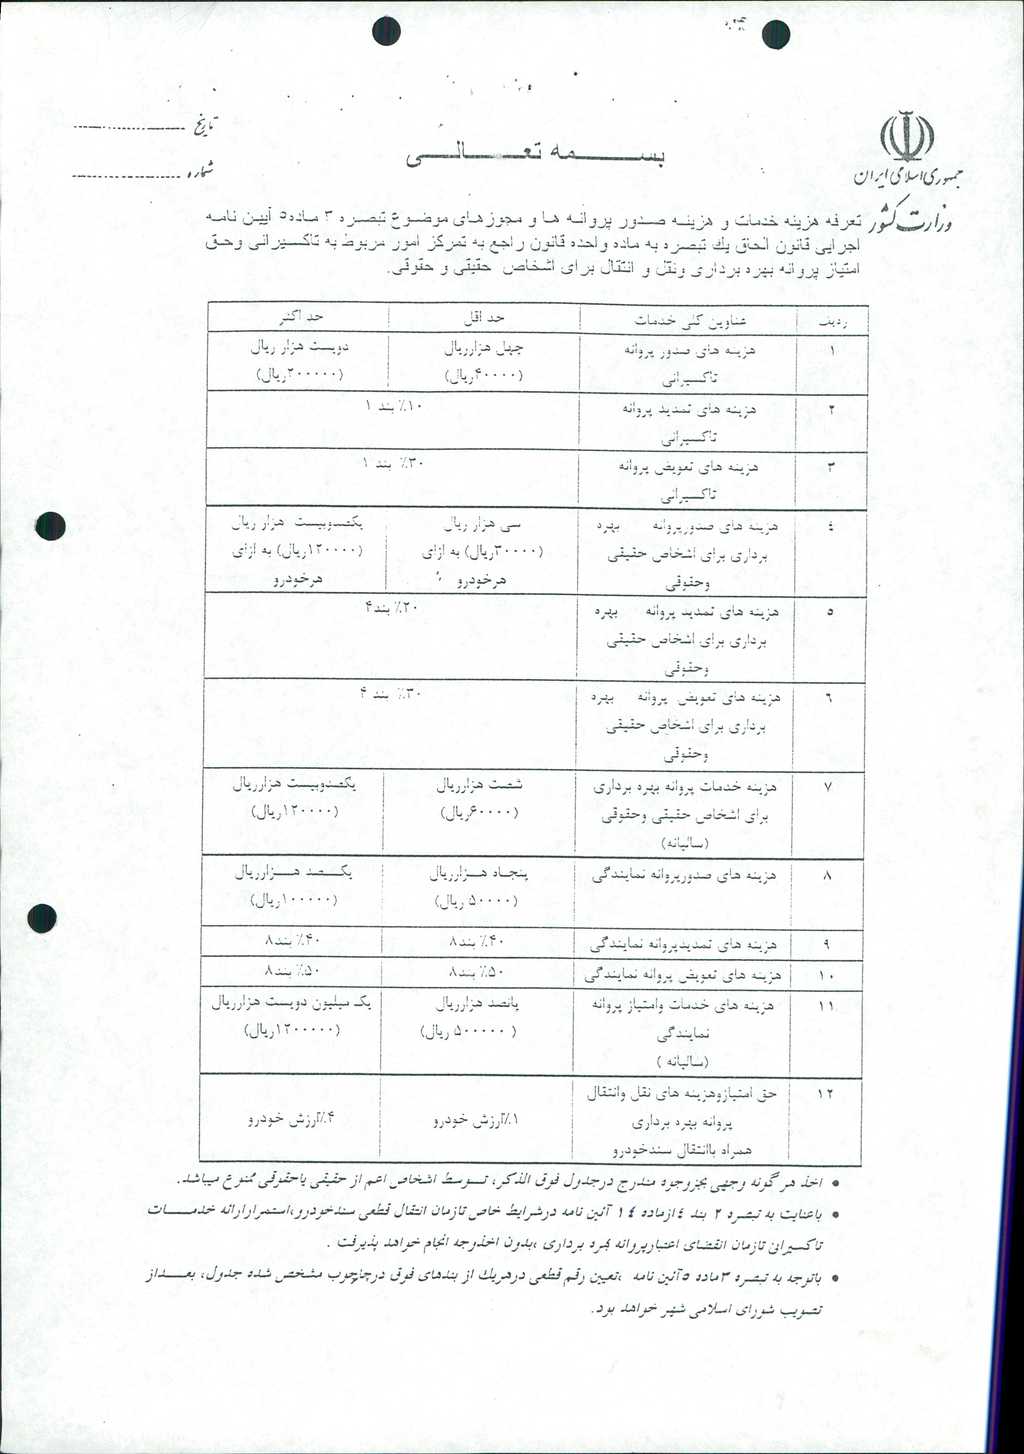 تاریخ
شماره
بسمه تعالی
جمهوری اسلامی ایران
وزارت کشور
تعرفه هزینه خدمات و هزینه صدور پروانه ها و مجوزهای موضوع تبصره ۳ ماده۵ آیین نامه
اجرایی قانون الحاق یك تبصره به ماده واحده قانون راجع به تمرکز امور مربوط به تاکسیرانی وحق
امتیاز پروانه بهره برداری ونقل و انتقال برای اشخاص حقیقی و حقوقی.
ردیف عناوین کلی خدمات حد اقل حد اکثر
۱ هزینه های صدور پروانه چهل هزارریال دویست هزار ریال
تاکسیرانی (۴۰۰۰۰ریال) (۲۰۰۰۰۰ریال)
۲ هزینه های تمدید پروانه ۱۰٪ بند ۱
تاکسیرانی
۳ هزینه های تعویض پروانه ۳۰٪ بند ۱
تاکسیرانی
٤ هزینه های صدورپروانه بهره سی هزار ریال یکصدوبیست هزار ریال
برداری برای اشخاص حقیقی (۳۰۰۰۰ریال) به ازای (۱۲۰۰۰۰ریال) به ازای
وحقوقی هرخودرو هرخودرو
۵ هزینه های تمدید پروانه بهره ۲۰٪ بند۴
برداری برای اشخاص حقیقی
وحقوقی
٦ هزینه های تعویض پروانه بهره ۳۰٪ بند ۴
برداری برای اشخاص حقیقی
وحقوقی
۷ هزینه خدمات پروانه بهره برداری شصت هزارریال یکصدوبیست هزارریال
برای اشخاص حقیقی وحقوقی (۶۰۰۰۰ریال) (۱۲۰۰۰۰ریال)
(سالیانه)
۸ هزینه های صدورپروانه نمایندگی پنجاه هزارریال یکصد هزارریال
(۵۰۰۰۰ ریال) (۱۰۰۰۰۰ریال)
۹ هزینه های تمدیدپروانه نمایندگی ۴۰٪ بند۸ ۴۰٪ بند۸
۱۰ هزینه های تعویض پروانه نمایندگی ۵۰٪ بند۸ ۵۰٪ بند۸
۱۱ هزینه های خدمات وامتیاز پروانه پانصد هزارریال یک میلیون دویست هزارریال
نمایندگی (۵۰۰۰۰۰ ریال) (۱۲۰۰۰۰۰ریال)
(سالیانه )
۱۲ حق امتیازوهزینه های نقل وانتقال
پروانه بهره برداری ۱٪ارزش خودرو ۴٪ارزش خودرو
همراه باانتقال سندخودرو
• اخذ هرگونه وجهی بجزوجوه مندرج درجدول فوق الذکر، توسط اشخاص اعم از حقیقی یاحقوقی ممنوع میباشد.
• باعنایت به تبصره ۲ بند ٤ازماده ۱٤ آئین نامه درشرایط خاص تازمان انتقال قطعی سندخودرو،استمرارارائه خدمات
تاکسیران تازمان انقضای اعتبارپروانه بهره برداری ،بدون اخذوجه انجام خواهد پذیرفت .
• باتوجه به تبصره ۳ماده ۵آئین نامه ،تعیین رقم قطعی درهریك از بندهای فوق درچاچوب مشخص شده جدول، بعداز
تصویب شورای اسلامی شهر خواهد بود.